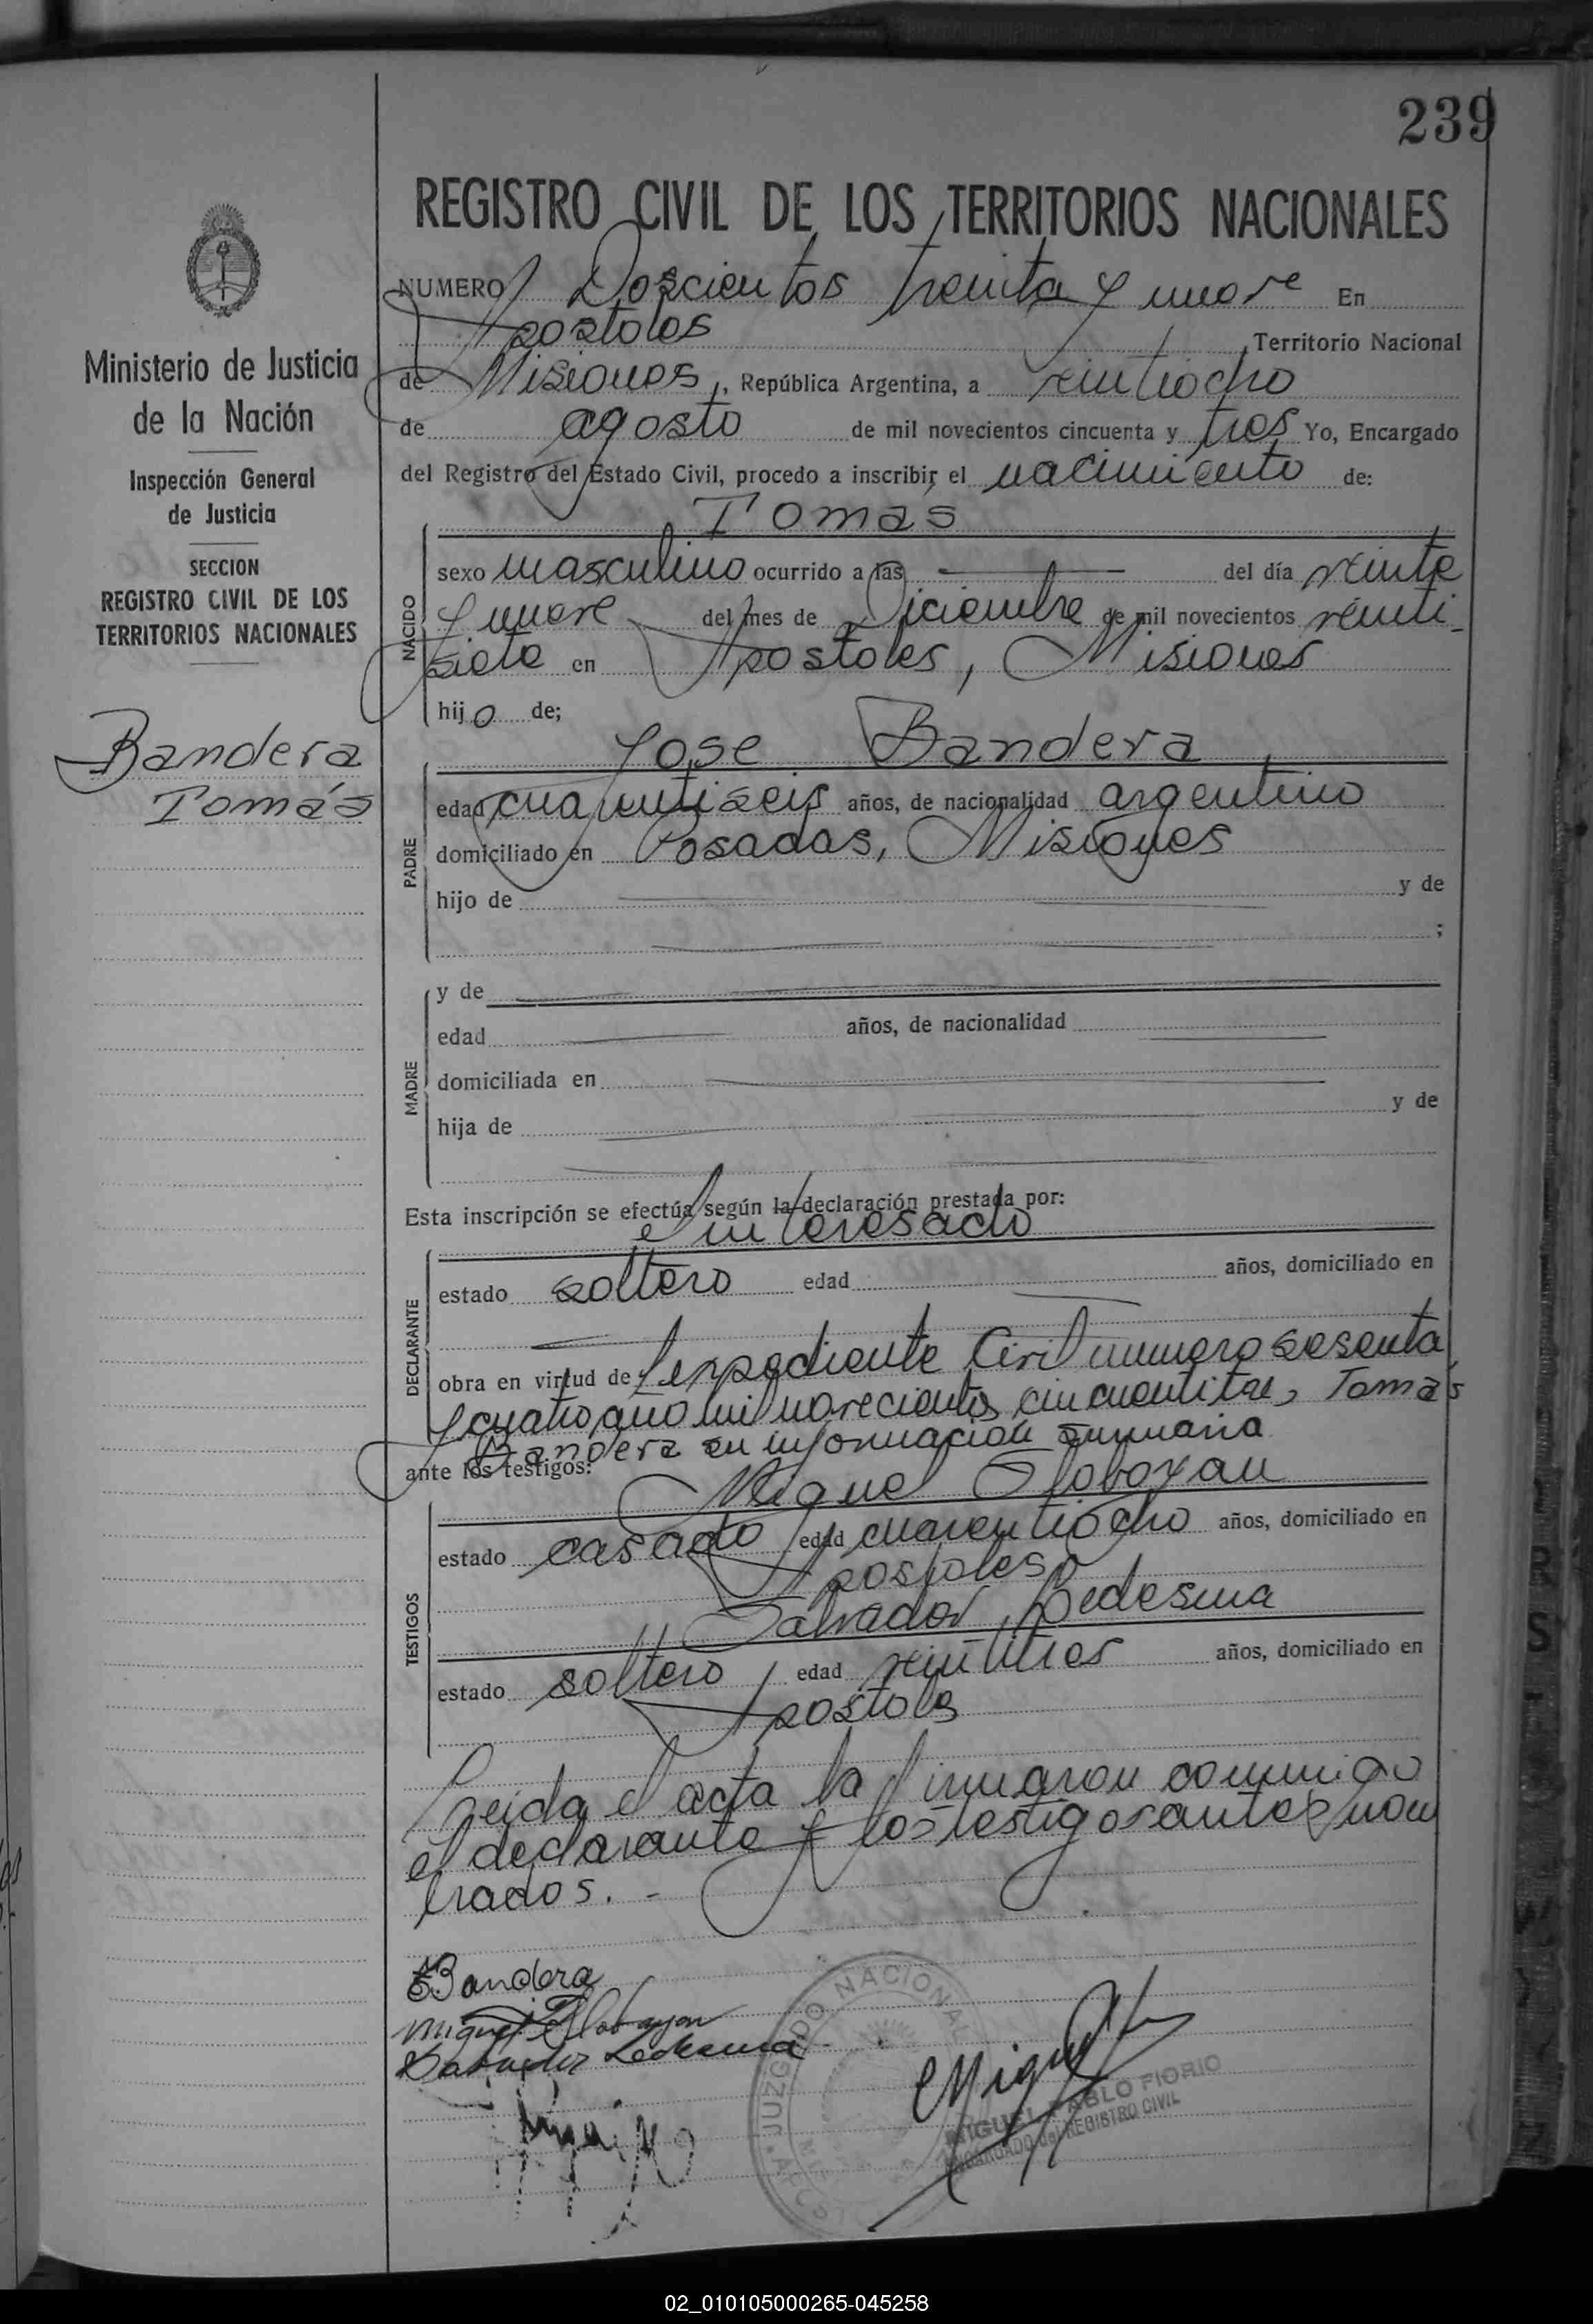 239
REGISTRO CIVIL DE LOS TERRITORIOS NACIONALES
Ministerio de Justicia
de la Nación
Inspección General
de Justicia
SECCION
REGISTRO CIVIL DE LOS
TERRITORIOS NACIONALES
Bandera
Tomás
NUMERO Doscientos treinta y nueve En
Apostoles Territorio Nacional
de Misiones, República Argentina, a veintiocho
de agosto de mil novecientos cincuenta y tres Yo, Encargado
del Registro del Estado Civil, procedo a inscribir el nacimiento de:
Tomás
NACIDO
sexo masculino ocurrido a las — del día veinte
y nueve del mes de Diciembre de mil novecientos veinti
siete en Apostoles, Misiones
hijo de;
Jose Bandera
PADRE
edad cuarentiseis años, de nacionalidad argentino
domiciliado en Posadas, Misiones
hijo de y de
;
MADRE
y de
edad años, de nacionalidad
domiciliada en
hija de y de
Esta inscripción se efectúa según la declaración prestada por:
el interesado
DECLARANTE
estado soltero edad años, domiciliado en
obra en virtud del expediente Civil numero sesenta
y cuatro año mil novecientos cincuentitres, Tomas
Bandera su informacion sumaria
ante los testigos:
Miguel Slobayan
TESTIGOS
estado casado edad cuarentiocho años, domiciliado en
Apostoles
Salvador Ledesma
estado soltero edad veintitres años, domiciliado en
Apostoles
Leida el acta la firmaron conmigo
el declarante y los testigos antes nom
brados. -
Bandera
Miguel Slobayan
Salvador Ledesma
JUZGADO NACIONAL
Miguel
MIGUEL PABLO FIORIO
ENCARGADO del REGISTRO CIVIL
02_010105000265-045258